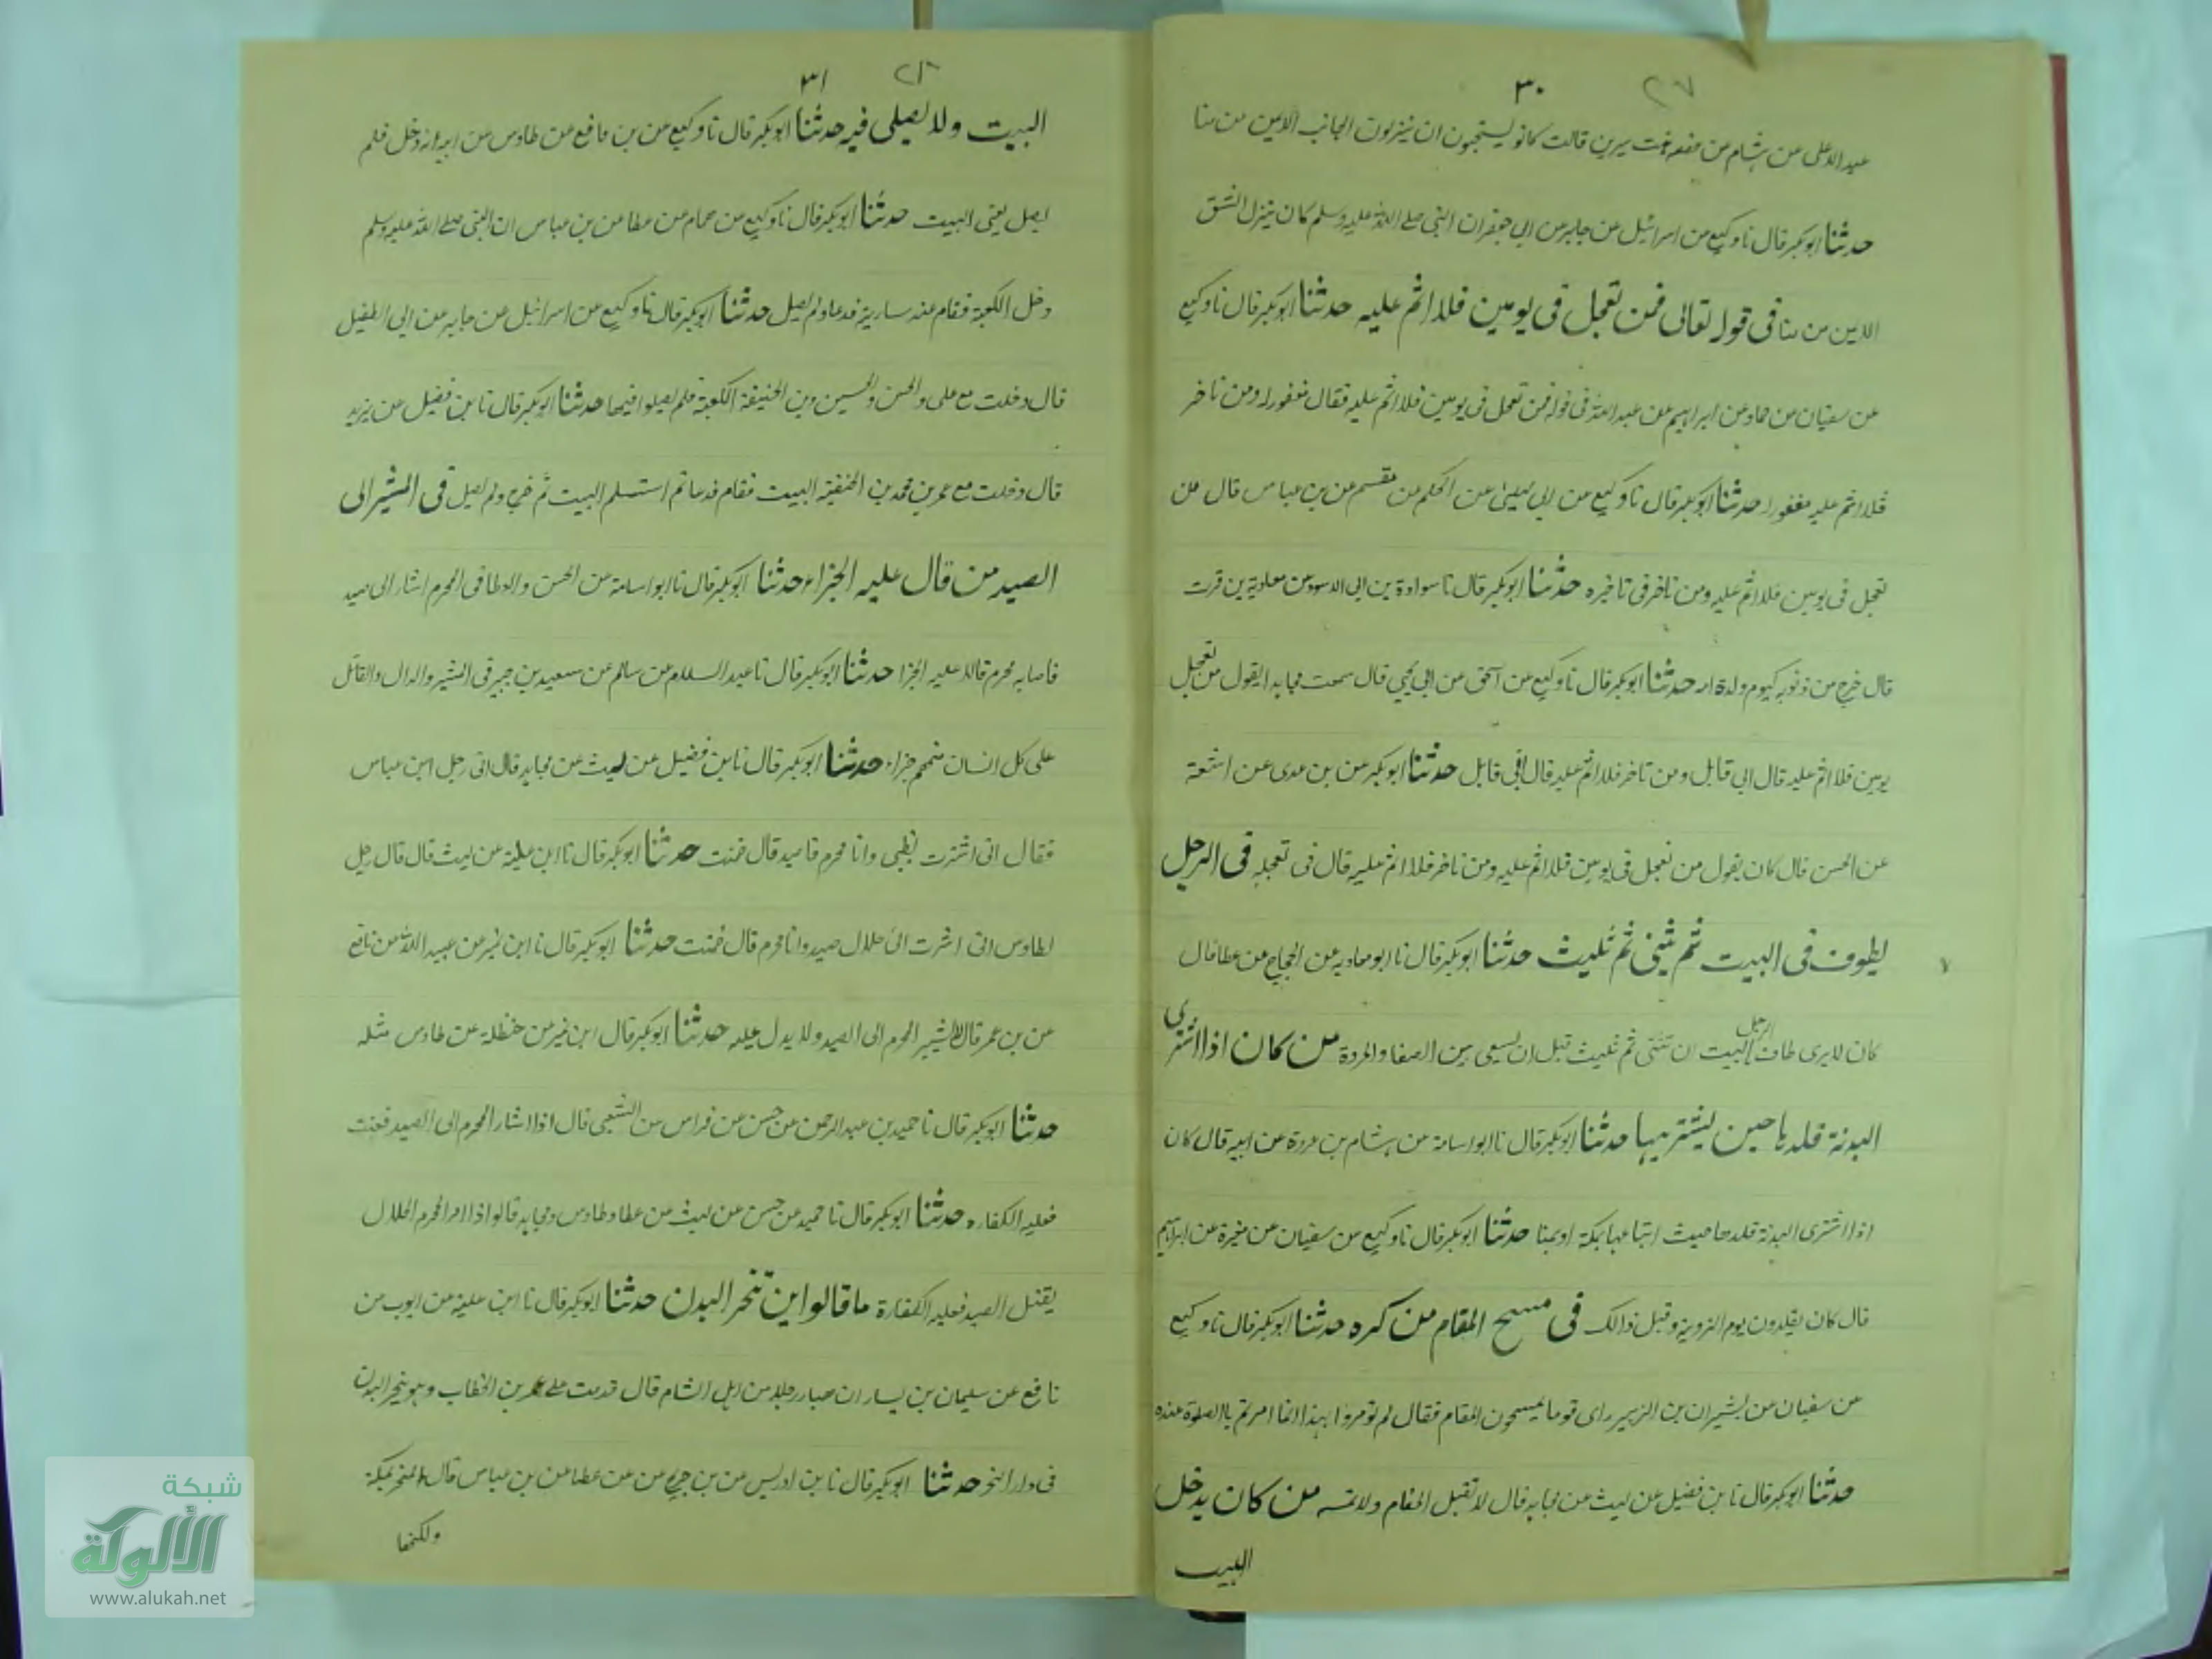 ٢٧ ٣٠
عبد الاعلى عن هشام عن حفصه بنت سيرين قالت كانو يستحبون ان ينزلون الجانب الايمن من منا
حدثنا ابوبكر قال نا وكيع عن اسرائيل عن جابر عن ابي جعفر ان النبي صلى الله عليه وسلم كان ينزل الشق
الايمن من منا في قوله تعالى فمن تعجل في يومين فلا اثم عليه حدثنا ابوبكر قال نا وكيع
عن سفيان عن حماد عن ابراهيم عن عبد الله في قوله فمن تعجل في يومين فلا اثم عليه فقال مغفور له ومن تاخر
فلا اثم عليه مغفور له حدثنا ابوبكر قال نا وكيع عن ابي ليلى عن الحكم عن مقسم عن بن عباس قال من
تعجل في يومين فلا اثم عليه ومن تاخر في تاخيره حدثنا ابوبكر قال نا سوادة بن ابي الاسود عن معاوية بن قرت
قال خرج من ذنوبه كيوم ولدة امه حدثنا ابوبكر قال نا وكيع عن اسحق عن ابي يحيى قال سمعت مجاهدا يقول من تعجل
يومين فلا اثم عليه قال الى قابل ومن تاخر فلا اثم عليه قال الى قابل حدثنا ابوبكر عن بن عدى عن اشعة
عن الحسن قال كان يقول من تعجل في يومين فلا اثم عليه ومن تاخر فلا اثم عليه قال في تعجله في الرجل
يطوف في البيت ثم يثنى ثم ثليث حدثنا ابوبكر قال نا ابو معاويه عن الحجاج عن عطا قال
كان لا يرى طاف الرجل البيت ان يثنى ثم ثليث قبل ان يسعى بين الصفا والمروة من كان اذا اشترى
البدنة قلدها حين يشتريها حدثنا ابوبكر قال نا ابو اسامة عن هشام بن عروة عن ابيه قال كان
اذا اشترى البدنة قلدها حيث ابتاعها بمكة او بمنا حدثنا ابوبكر قال نا وكيع عن سفيان عن مغيرة عن ابراهيم
قال كان يقلدون يوم التروية وقبل ذالك في مسح المقام من كره حدثنا ابوبكر قال نا وكيع
عن سفيان عن بشير ان بن الزبير راى قوما يمسحون المقام فقال لم تومروا بهذا انما امرتم بالصلوة عنده
حدثنا ابوبكر قال نا بن فضيل عن ليث عن مجاهد قال لا تقبل المقام ولا تمسه من كان يدخل
البيت
٢٨ ٣١
البيت ولا يصلى فيه حدثنا ابوبكر قال نا وكيع عن بن نافع عن طاوس عن ابيه انه دخل فلم
يصل يعنى البيت حدثنا ابوبكر قال نا وكيع عن همام عن عطا عن بن عباس ان النبي صلى الله عليه وسلم
دخل الكعبة فقام عند سارية فدعا ولم يصل حدثنا ابوبكر قال نا وكيع عن اسرائيل عن جابر عن ابي الطفيل
قال دخلت مع على والحسن والحسين وبن الحنيفة الكعبة فلم يصلوا فيها حدثنا ابوبكر قال نا بن فضيل عن يزيد
قال دخلت مع عمر بن محمد بن الحنفية البيت فقام فدعا ثم استسلم البيت ثم خرج ولم يصل في المشير الى
الصيد من قال عليه الجزاء حدثنا ابوبكر قال نا ابو اسامة عن الحسن والعطا في المحرم اشار الى صيد
فاصابه محرم قالا عليه الجزا حدثنا ابوبكر قال نا عبد السلام عن سالم عن سعيد بن جبير في المشير والدال والقاتل
على كل انسان منهم جزاء حدثنا ابوبكر قال نا بن فضيل عن ليث عن مجاهد قال اتى رجل ابن عباس
فقال انى اشرت بظبى وانا محرم فاصيد قال ضمنت حدثنا ابوبكر قال نا ابن علية عن ليث قال قال رجل
لطاوس انى اشرت الى حلال صيد وانا محرم قال ضمنت حدثنا ابوبكر قال نا ابن نمير عن عبيد الله عن نافع
عن بن عمر قال لا يشير المحرم الى الصيد ولا يدل عليه حدثنا ابوبكر قال ابن نمير عن حنظلة عن طاوس مثله
حدثنا ابوبكر قال نا حميد بن عبد الرحمن عن حسن عن فراس عن الشعبى قال اذا اشار المحرم الى الصيد فعنت
فعليه الكفاره حدثنا ابوبكر قال نا حميد عن حسن عن ليث عن عطا وطاوس ومجاهد قالوا اذا امر المحرم الحلال
يقتل الصيد فعليه الكفارة ما قالوا اين تنحر البدن حدثنا ابوبكر قال نا ابن علية عن ايوب عن
نافع عن سليمان بن يسار ان هبار رجلا من اهل الشام قال قدمت على عمر بن الخطاب وهو ينحر البدن
في دار النحر حدثنا ابوبكر قال نا بن ادريس عن بن جريج عن عطا عن بن عباس قال المنحر بمكة
ولكنها
شبكة
الألوكة
www.alukah.net